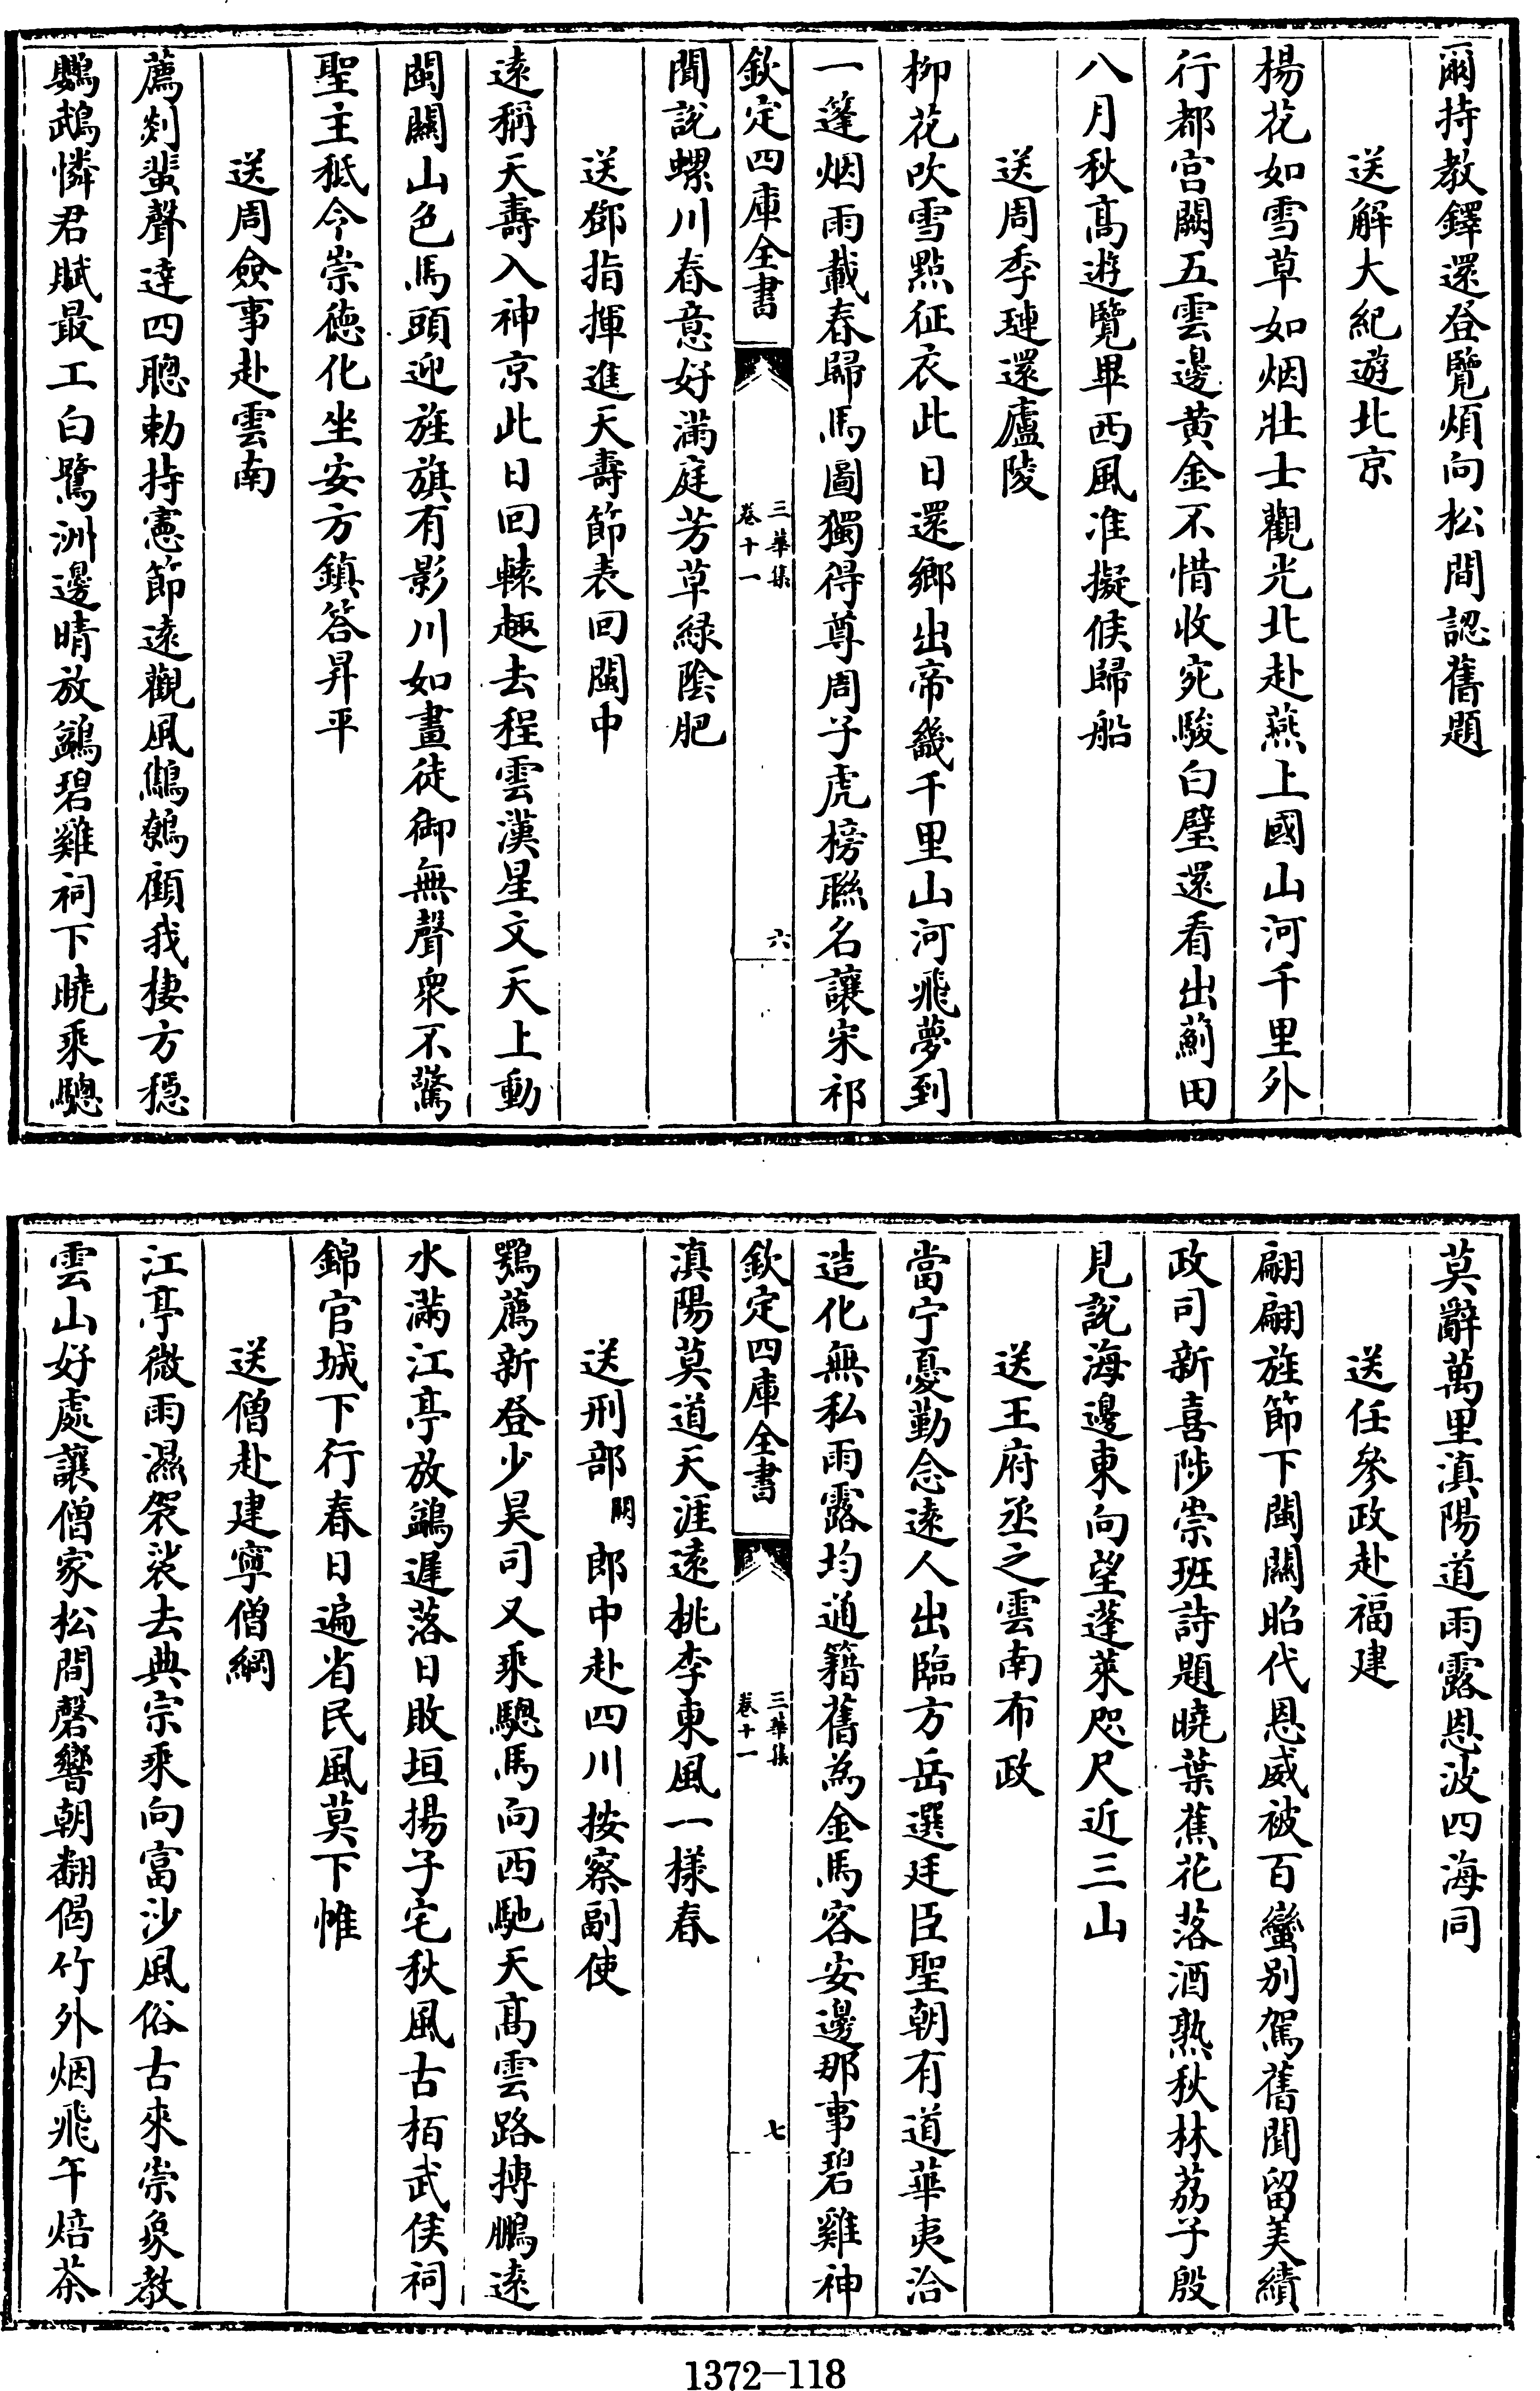 爾持教鐸還登覽煩向松間認舊題
送解大紀遊北京
楊花如雪草如烟壯士觀光北赴燕上國山河千里外
行都宫闕五雲邊黄金不惜收宛駿白璧還看出薊田
八月秋髙遊覽畢西風准擬候歸船
送周季璉還廬陵
柳花吹雪點征衣此日還鄉出帝畿千里山河飛夢到
一篷烟雨載春歸馬圖獨得尊周子虎榜聮名讓宋祁
欽定四庫全書
三華集
卷十一
六
聞說螺川春意好滿庭芳草緑陰肥
送鄧指揮進天壽節表回閩中
逺稱天壽入神京此日回轅趣去程雲漢星文天上動
閩闗山色馬頭迎旌旗有影川如畫徒御無聲衆不驚
聖主秪今崇徳化坐安方鎮答昇平
送周僉事赴雲南
薦剡蜚聲達四聰勅持憲節逺觀風鵷鶵顧我棲方穏
鸚鵡憐君賦最工白鷺洲邊晴放鷁碧雞祠下曉乘驄
莫辭萬里滇陽道雨露恩波四海同
送任參政赴福建
翩翩旌節下閩闗昭代恩威被百蠻别駕舊聞留美績
政司新喜陟崇班詩題曉葉蕉花落酒熟秋林荔子殷
見說海邊東向望蓬萊咫尺近三山
送王府丞之雲南布政
當宁憂勤念逺人出臨方岳選廷臣聖朝有道華夷洽
造化無私雨露均通籍舊為金馬客安邊那事碧雞神
欽定四庫全書
三華集
卷十一
七
滇陽莫道天涯逺桃李東風一樣春
送刑部闕郎中赴四川按察副使
鶚薦新登少昊司又乘驄馬向西馳天髙雲路摶鵬逺
水滿江亭放鷁遲落日敗垣揚子宅秋風古柏武侯祠
錦官城下行春日遍省民風莫下帷
送僧赴建寧僧綱
江亭微雨濕袈裟去典宗乘向富沙風俗古來崇象教
雲山好處讓僧家松間磬響朝翻偈竹外烟飛午焙茶
1372-118